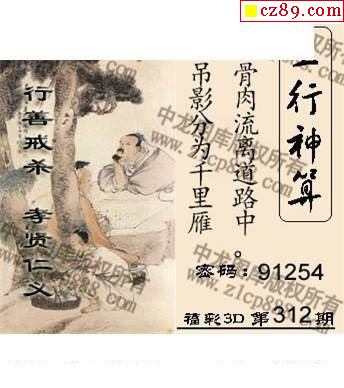 cz89.com
行神算
骨肉流离道路中。
吊影分为千里雁
行善戒杀 孝贤仁义
密码：91254
福彩3D 第312期
中龙图库版权所有
www.z1cp888.com